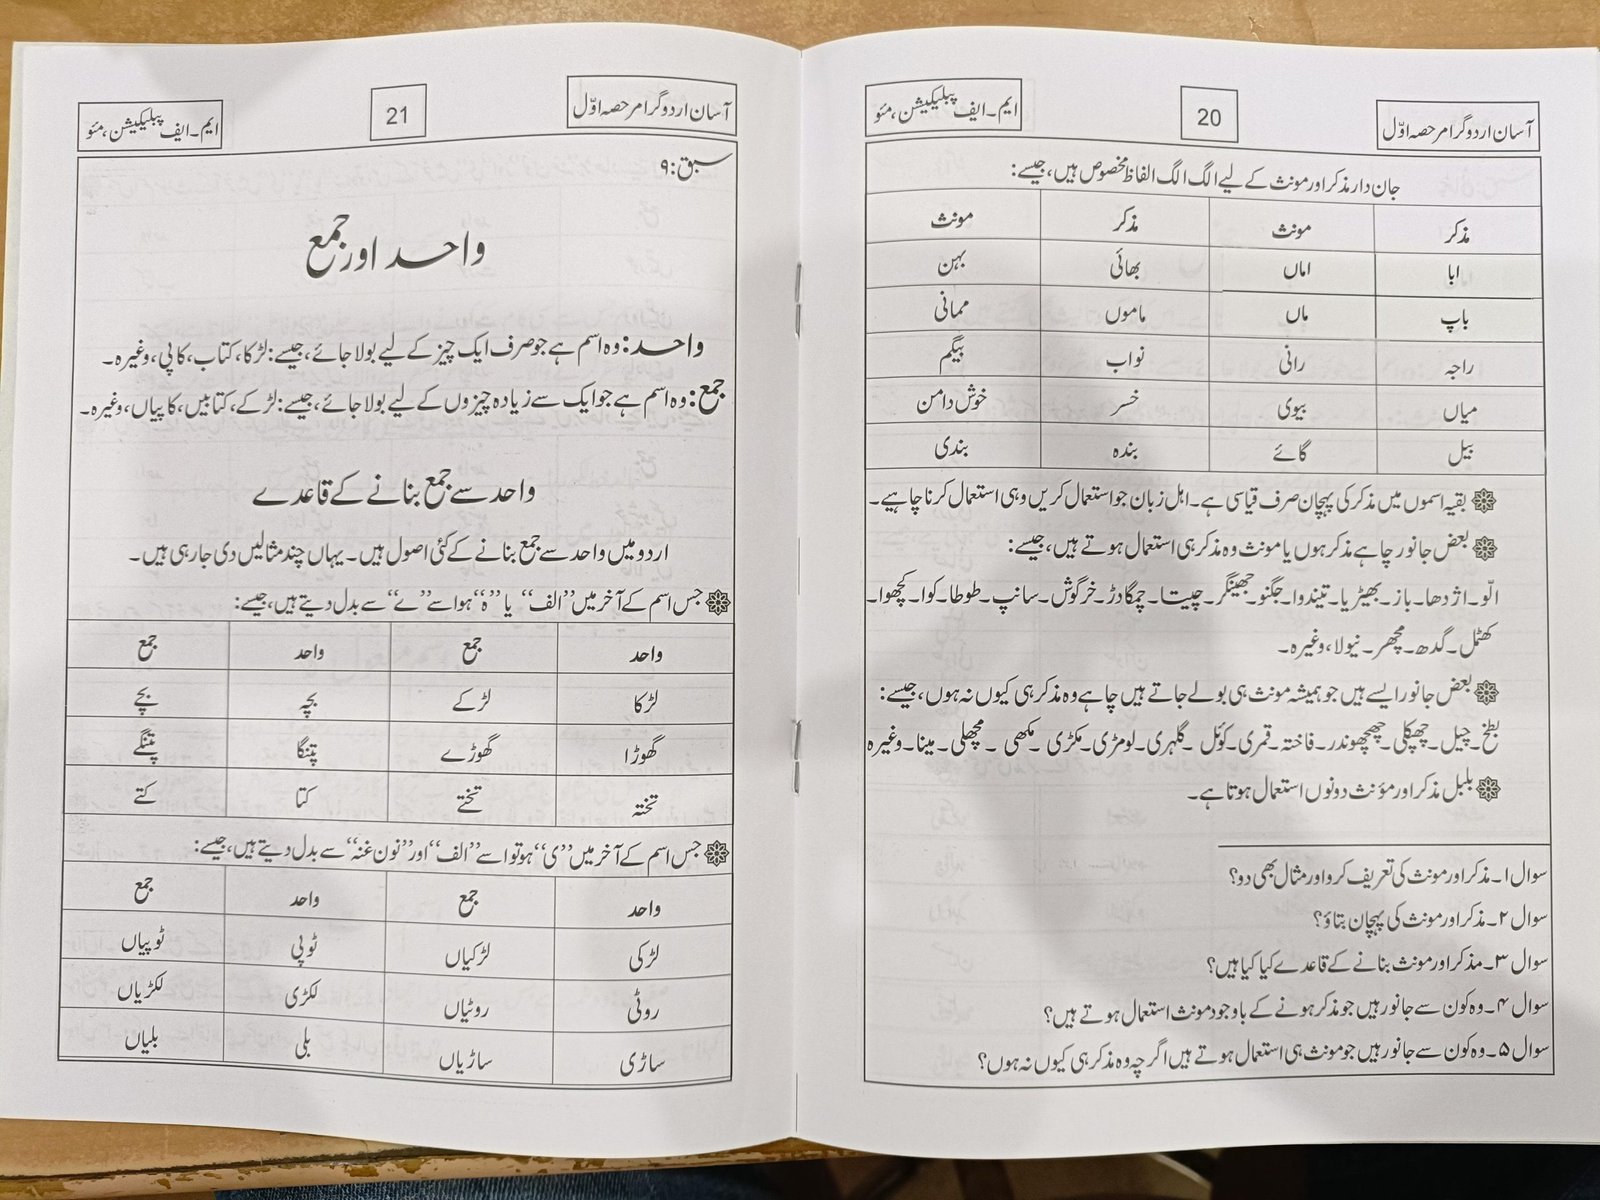 آسان اردو گرامر حصہ اوّل
20
ایم۔ایف پبلیکیشن، مئو
جان دار مذکر اور مونث کے لیے الگ الگ الفاظ مخصوص ہیں، جیسے:
مذکر مونث مذکر مونث
ابا اماں بھائی بہن
باپ ماں ماموں ممانی
راجہ رانی نواب بیگم
میاں بیوی خسر خوش دامن
بیل گائے بندہ بندی
بقیہ اسموں میں مذکر کی پہچان صرف قیاسی ہے۔ اہل زبان جو استعمال کریں وہی استعمال کرنا چاہیے۔
بعض جانور چاہے مذکر ہوں یا مونث وہ مذکر ہی استعمال ہوتے ہیں، جیسے:
الّو۔ اژدھا۔ باز۔ بھیڑیا۔ تیندوا۔ جگنو۔ جھینگر۔ چیتا۔ چمگادڑ۔ خرگوش۔ سانپ۔ طوطا۔ کوا۔ کچھوا۔
کھٹمل۔ گدھ۔ مچھر۔ نیولا، وغیرہ۔
بعض جانور ایسے ہیں جو ہمیشہ مونث ہی بولے جاتے ہیں چاہے وہ مذکر ہی کیوں نہ ہوں، جیسے:
بطخ۔ چیل۔ چھپکلی۔ چھچھوندر۔ فاختہ۔ قمری۔ کوئل۔ گلہری۔ لومڑی۔ مکڑی۔ مکھی۔ مچھلی۔ مینا۔ وغیرہ
بلبل مذکر اور مؤنث دونوں استعمال ہوتا ہے۔
سوال ۱۔ مذکر اور مونث کی تعریف کرو اور مثال بھی دو؟
سوال ۲۔ مذکر اور مونث کی پہچان بتاؤ؟
سوال ۳۔ مذکر اور مونث بنانے کے قاعدے کیا کیا ہیں؟
سوال ۴۔ وہ کون سے جانور ہیں جو مذکر ہونے کے باوجود مونث استعمال ہوتے ہیں؟
سوال ۵۔ وہ کون سے جانور ہیں جو مونث ہی استعمال ہوتے ہیں اگرچہ وہ مذکر ہی کیوں نہ ہوں؟
آسان اردو گرامر حصہ اوّل
21
ایم۔ایف پبلیکیشن، مئو
سبق: ۹
واحد اور جمع
واحد: وہ اسم ہے جو صرف ایک چیز کے لیے بولا جائے، جیسے: لڑکا، کتاب، کاپی، وغیرہ۔
جمع: وہ اسم ہے جو ایک سے زیادہ چیزوں کے لیے بولا جائے، جیسے: لڑکے، کتابیں، کاپیاں، وغیرہ۔
واحد سے جمع بنانے کے قاعدے
اردو میں واحد سے جمع بنانے کے کئی اصول ہیں۔ یہاں چند مثالیں دی جا رہی ہیں۔
جس اسم کے آخر میں ”الف“ یا ”ہ“ ہو اسے ”ے“ سے بدل دیتے ہیں، جیسے:
واحد جمع واحد جمع
لڑکا لڑکے بچہ بچے
گھوڑا گھوڑے پتنگا پتنگے
تختہ تختے کتا کتے
جس اسم کے آخر میں ”ی“ ہو تو اسے ”الف“ اور ”نون غنہ“ سے بدل دیتے ہیں، جیسے:
واحد جمع واحد جمع
لڑکی لڑکیاں ٹوپی ٹوپیاں
روٹی روٹیاں لکڑی لکڑیاں
ساڑی ساڑیاں بلی بلیاں